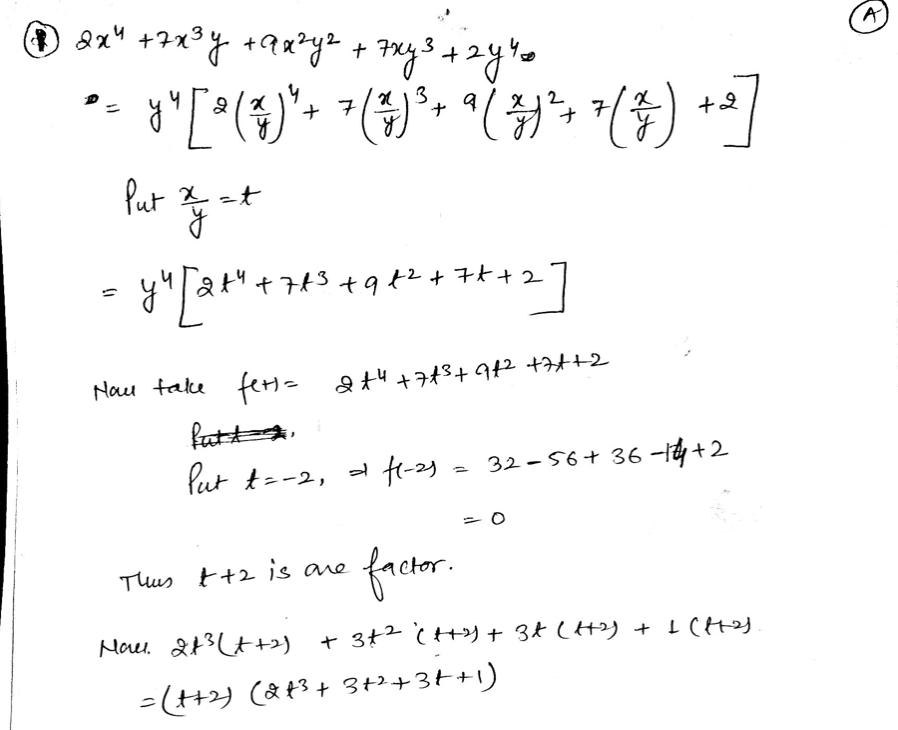 (A)
① 2x⁴ + 7x³y + 9x²y² + 7xy³ + 2y⁴
= y⁴ [ 2(x/y)⁴ + 7(x/y)³ + 9(x/y)² + 7(x/y) + 2 ]
Put x/y = t
= y⁴ [ 2t⁴ + 7t³ + 9t² + 7t + 2 ]
Now take f(t) = 2t⁴ + 7t³ + 9t² + 7t + 2
Put t = -2, ⇒ f(-2) = 32 - 56 + 36 - 14 + 2
= 0
Thus t+2 is one factor.
Now. 2t³(t+2) + 3t² (t+2) + 3t (t+2) + 1 (t+2)
= (t+2) (2t³ + 3t² + 3t + 1)